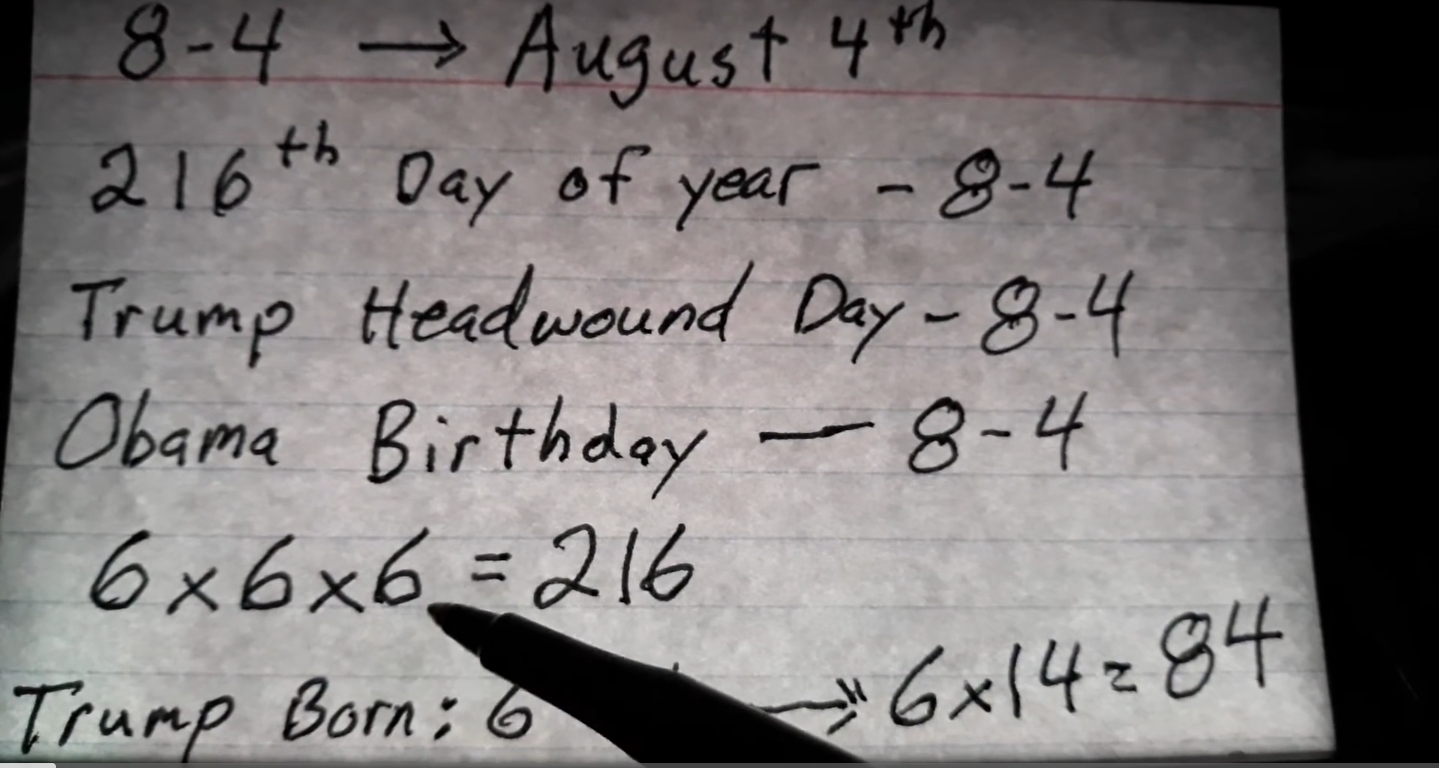 8-4 → August 4th
216th Day of year - 8-4
Trump Headwound Day - 8-4
Obama Birthday — 8-4
6x6x6 = 216
Trump Born: 6 → 6x14 = 84